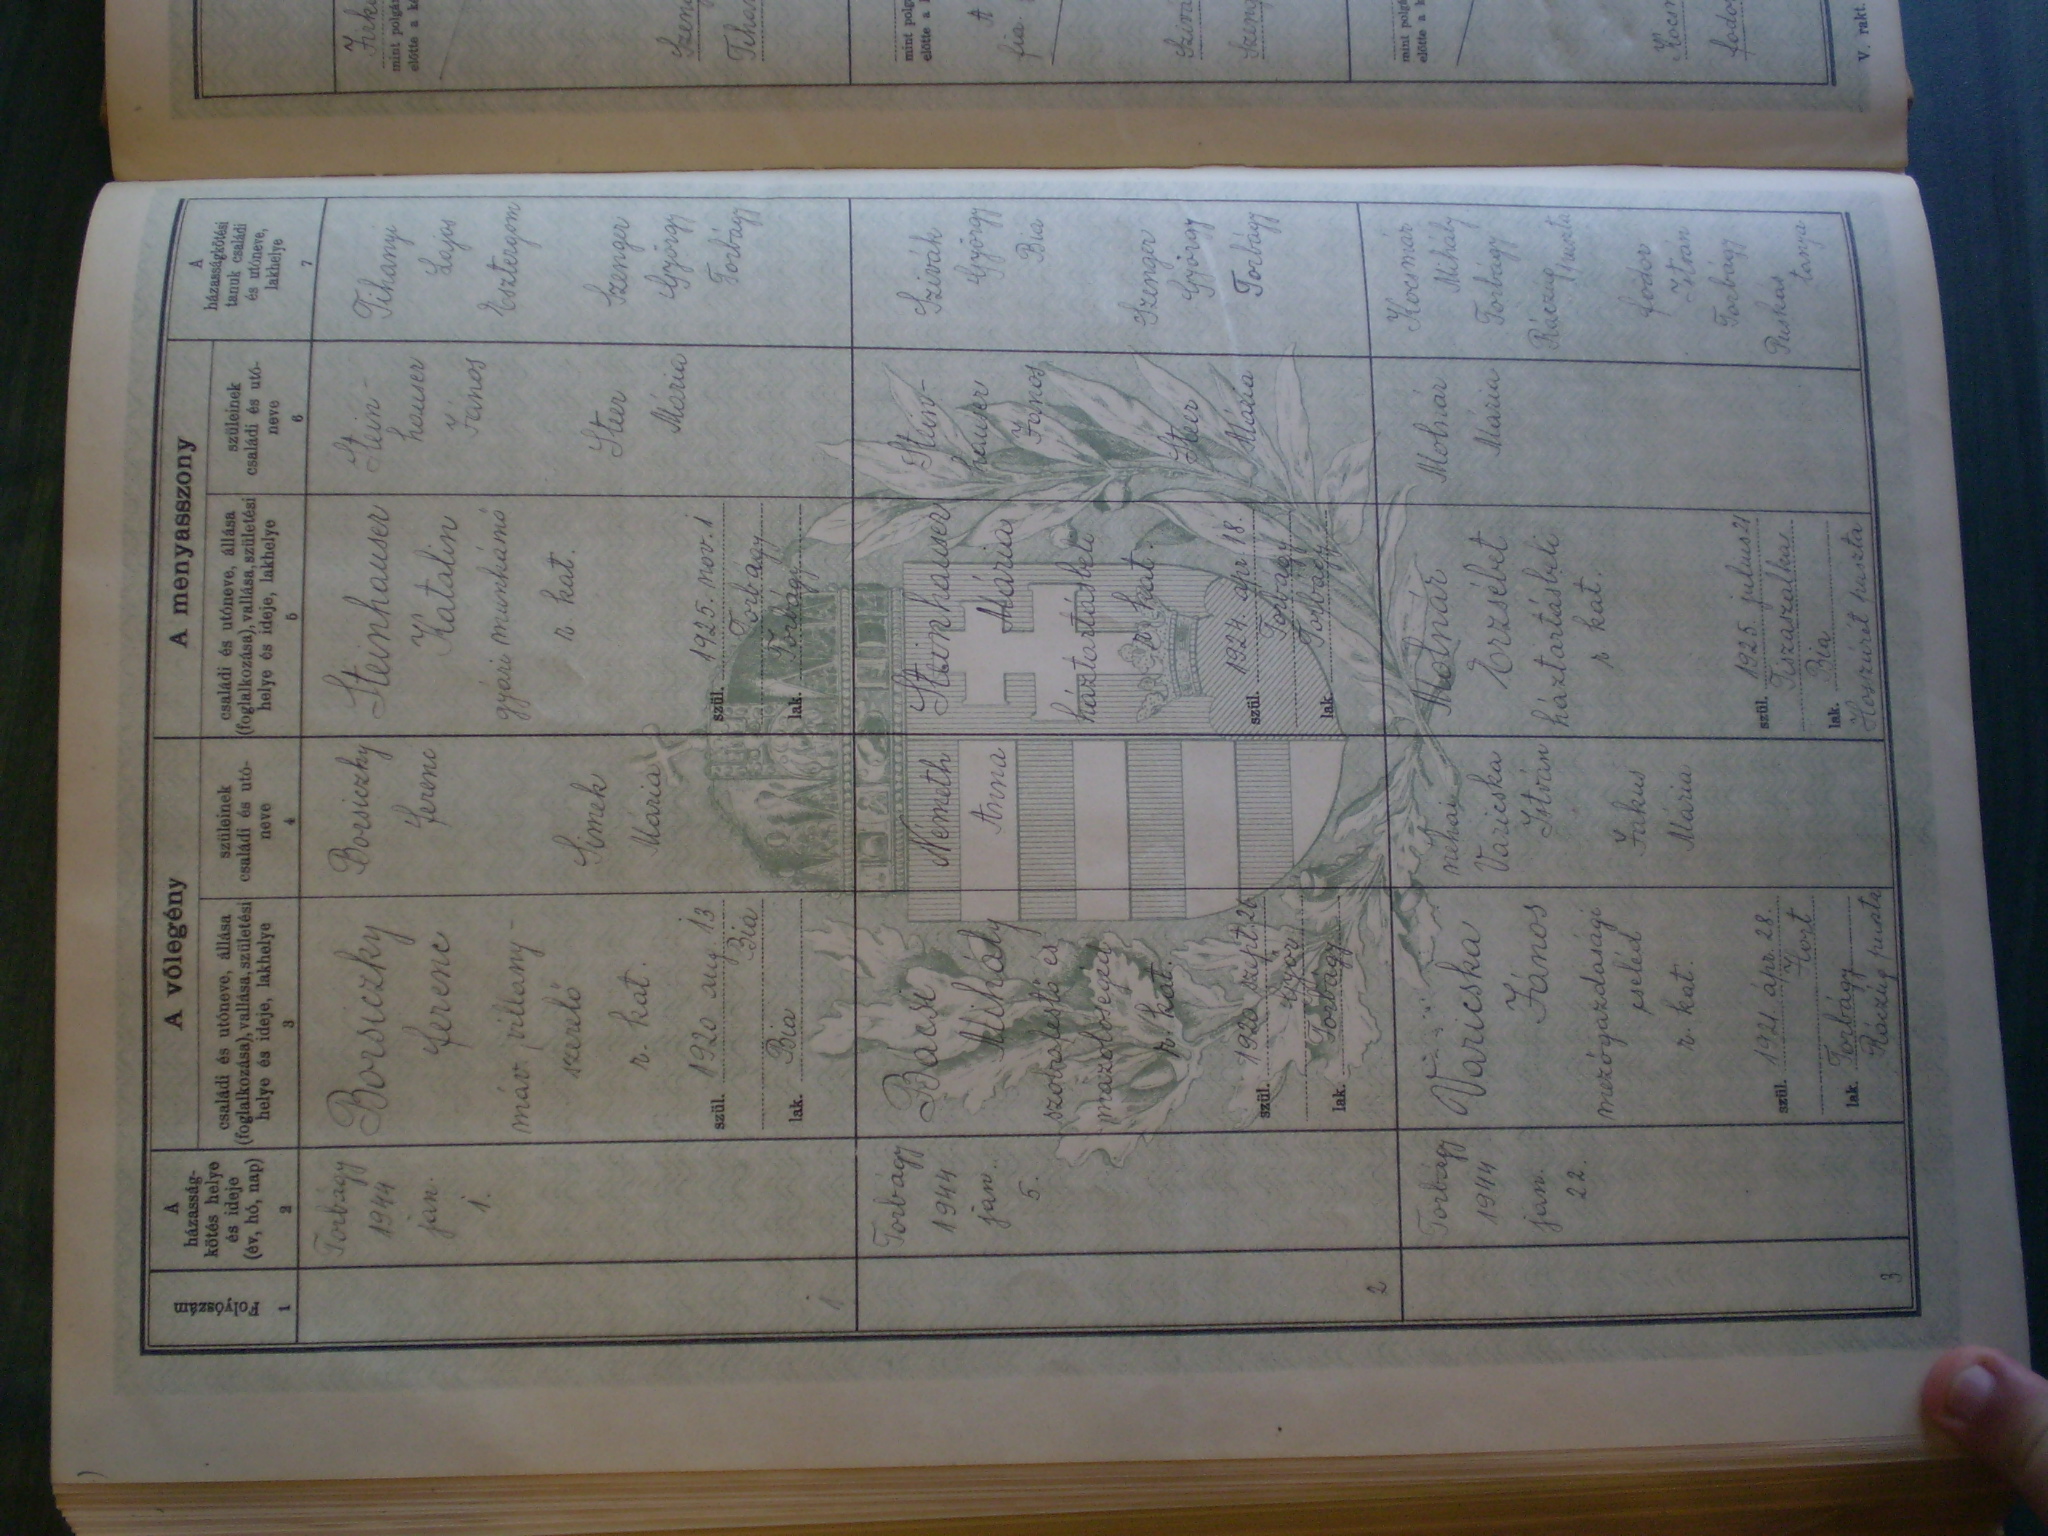 A vőlegény
A menyasszony
Folyószám
1
A
házasság-
kötés helye
és ideje
(év, hó, nap)
2
családi és utóneve, állása
(foglalkozása), vallása, születési
helye és ideje, lakhelye
3
szüleinek
családi és utó-
neve
4
családi és utóneve, állása
(foglalkozása), vallása, születési
helye és ideje, lakhelye
5
szüleinek
családi és utó-
neve
6
A
házasságkötési
tanuk családi
és utóneve,
lakhelye
7
1
Torbágy
1944
jan.
1.
Borsiczky
Ferenc
máv. villany-
szerelő
r. kat.
szül. 1920 aug 13
Bia
lak. Bia
Borsiczky
Ferenc
Simek
Mária
Steinhauser
Katalin
gyári munkásnő
r. kat.
szül. 1925. nov. 1
Torbágy
lak. Torbágy
Stein-
hauser
János
Steer
Mária
Tihanyi
Lajos
Esztergom
Szenger
György
Torbágy
2
Torbágy
1944
jan.
5.
Bácsi
Mihály
szobafestő és
mázolósegéd
r. kat.
szül. 1920 szept. 26
Győr
lak. Torbágy
Németh
Anna
Steinhauser
Mária
háztartásbeli
r. kat.
szül. 1924. apr. 18.
Torbágy
lak Torbágy
Stein-
hauser
János
Steer
Mária
Szivák
György
Bia
Szenger
György
Torbágy
3
Torbágy
1944
jan.
22.
Varicska
János
mezőgazdasági
cseléd
r. kat.
szül. 1921. ápr. 28.
Hort
lak. Torbágy
Ráczúg puszta
néhai
Varicska
István
Fakus
Mária
Molnár
Erzsébet
háztartásbeli
r kat.
szül. 1925. julius 21
Tiszaszalkas
lak. Bia
puszta
Molnár
Mária
Kocsmár
Mihály
Torbágy
Ráczúg puszta
Fodor
István
Torbágy
Puskás
tanya
mint polgá
előtte a k
mint polgá
előtte a
fia.
mint polgá
előtte a k
V. rakt.